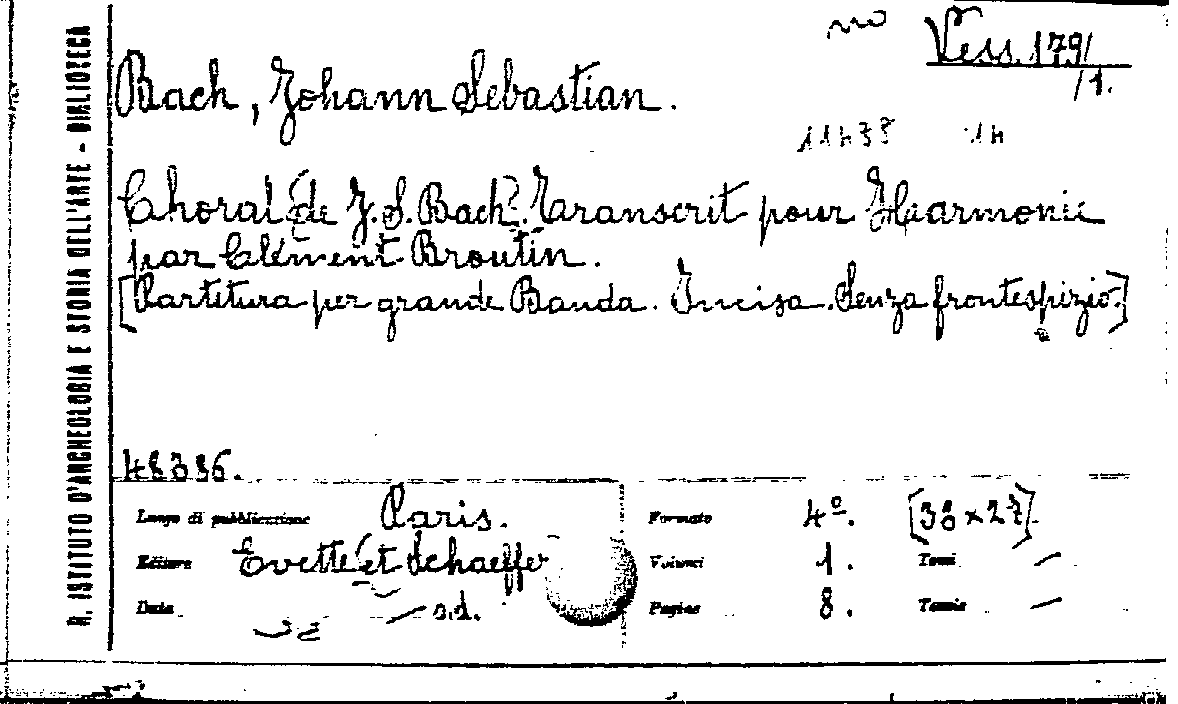 no Vess. 179/
/1.
Bach, Johann Sebastian.
Choral de J. S. Bach. Transcrit pour Harmonie
par Clément Broutin.
[Partitura per grande Banda. Incisa. Senza frontespizio.]
R. ISTITUTO D'ARCHEOLOGIA E STORIA DELL'ARTE - BIBLIOTECA
48386.
Luogo di pubblicazione Paris. Formato 4º. [38 x 27].
Editore Evette et Schaeffer Volumi 1. Tomi —
Data — s.d. Pagine 8. Tavole —